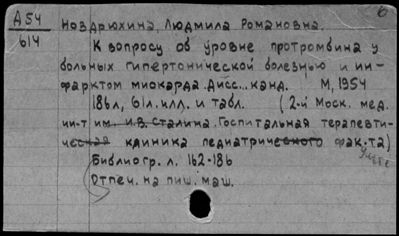 А 54 Ноздрюхина, Людмила Романовна.
614
К вопросу об уровне протромбина у
больных гипертонической болезнью и ин-
фарктом миокарда. Дисс... канд. М, 1954
186 л, 61 л. илл. и табл. (2-й Моск. мед.
ин-т им. И.В. Сталина. Госпитальная терапевти-
ческая клиника педиатрического фак-та)
Библиогр. л. 162-186
Отпеч. на пиш. маш.
б